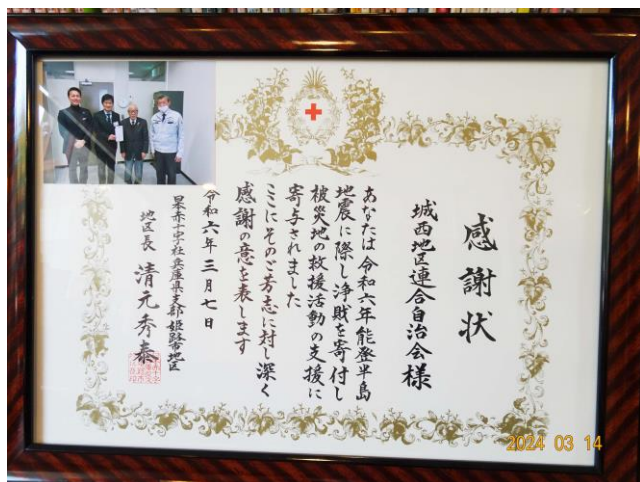 感謝状
城西地区連合自治会様
あなたは令和六年能登半島
地震に際し浄財を寄付し
被災地の救援活動の支援に
寄与されました
ここにそのご芳志に対し深く
感謝の意を表します
令和六年三月七日
日本赤十字社兵庫県支部姫路市地区
地区長 清元秀泰
2024 03 14